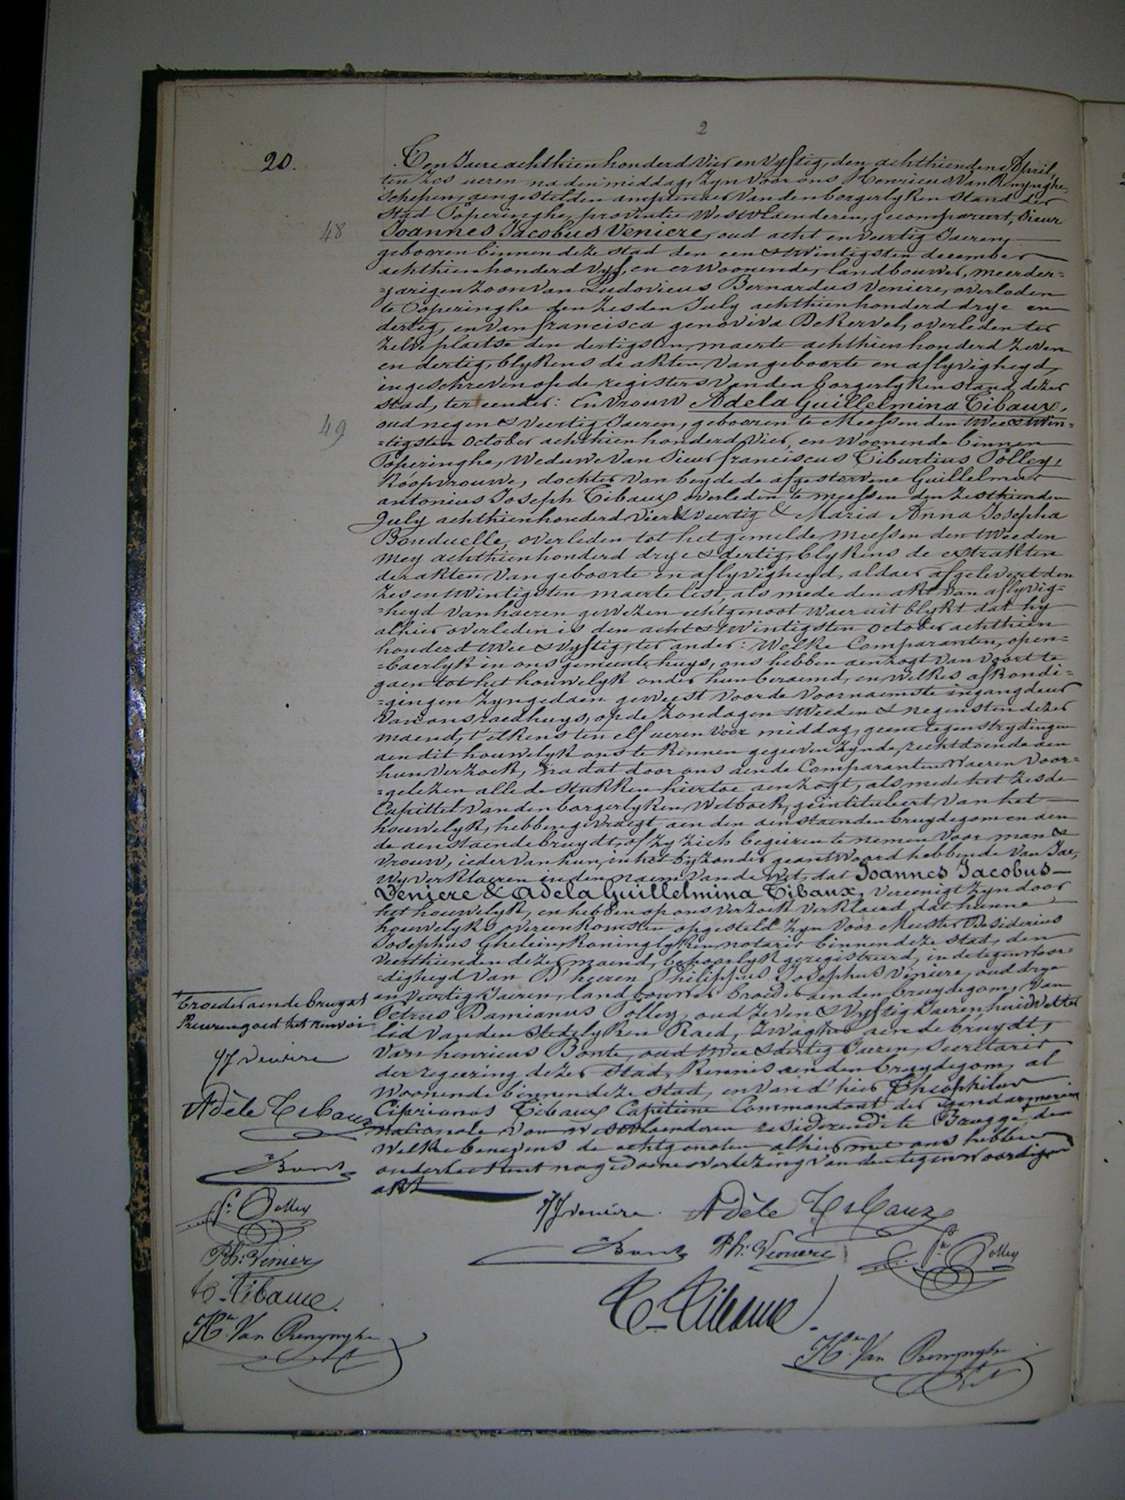 2
20.
Een Jaere achthien honderd vier en vyftig, den achthienden April,
ten zes ueren na den middag, zyn voor ons Henricus Van Renynghe,
schepen, aengestelden amptenaer van den borgerlyken stand der
Stad Poperinghe, provintie Westvlaenderen, gecompareert, Sieur
48
Joannes Jacobus Veniere, oud acht en veertig Jaeren,
gebooren binnen deze stad den een & twintigsten december
achthien honderd vyf, en er woonende, landbouwer, meerder-
-jarigen zoon van Ludovicus Bernardus Veniere, overleden
te Poperinghe den zesden July achthien honderd drye en
dertig, en van francisca genoviva DeKervel, overleden ter
zelve plaetse den dertigsten maerte achthien honderd zeven
en dertig, blykens de akten van geboorte en aflyvigheyd,
ingeschreven op de registers van den borgerlyken stand dezer
stad, ter eender: En vrouw Adela Guillelmina Tibaux,
49
oud negen & veertig Jaeren, gebooren te Meessen den twee & twin-
-tigsten October achthien honderd vier, en woonende binnen
Poperinghe, weduwe van Sieur franciscus Tiburtius Polley,
Koopvrouwe, dochter van beyde de afgestorvene Guillelmus
antonius Joseph Tibaux overleden te meessen den zesthienden
July achthien honderd vier & veertig & Maria Anna Josepha
Bouduelle, overleden tot het gemelde Meessen den tweeden
mey achthien honderd drye & dertig, blykens de extrakten
der akten van geboorte en aflyvigheyd, aldaer afgeleverd den
zes en twintigsten maerte lest, als mede den akt van aflyvig-
-heyd van haeren gewezen echtgenoot waer uit blykt dat hy
alhier overleden is den acht & twintigsten October achthien
honderd twee & vyftig, ter ander: Welke Comparanten, open-
-baerlyk in ons gemeentehuys, ons hebben aenzogt van voort te
gaen tot het houwelyk onder hun beraemd, en welkes afkondi-
-gingen zyn gedaen geweest voor de voornaemste ingangdeur
van ons raedhuys, op de zondagen tweeden & negensten dezer
maend, t'elkens ten elf ueren voor middag, geene tegenstrydingen
aen dit houwelyk ons te kennen gegeven zynde, recht doende aen
hun verzoek, na dat door ons aen de Comparanten waeren voor-
-gelezen alle de stukken hiertoe aenzogt, als mede het zesde
Capittel van den borgerlyken Wetboek, geintituleert van het
houwelyk, hebben gevraegt aen den aenstaenden bruydegom en aen
de aenstaende bruydt, of zy zich begeeren te nemen voor man &
vrouw, ieder van hun, in het byzonder geantwoord hebbende van Jae,
Wy verklaeren in den naem van de wet, dat Joannes Jacobus
Veniere & Adela Guillelmina Tibaux, vereenigt zyn door
het houwelyk, en hebben op ons verzoek verklaerd dat hunne
houwelyks overeenkomsten opgesteld zyn voor Meester Desiderius
Josephus Ghelein, koninglyken notaris binnen deze stad, den
veerthienden dezer maend, behoorlyk geregistreerd, in de tegenwoor-
-digheyd van D'heeren Philippus Josephus Veniere, oud drye
en veertig Jaeren, landbouwer broeder aen den bruydegom, van
Petrus Damianus Polley, oud zeven & vyftig Jaeren, huidvetter
lid van den stedelyken Raed, zwager aen de bruydt,
van henricus Bonte, oud twee & dertig Jaeren, secretaris
der regeering dezer stad, kennis aen den bruydegom, al
woonende binnen deze stad, en van d'hier Theophilus
Ciprianus Tibaux Capiteine Commandant der gendarmerie
nationale van westvlaenderen residerende te Brugge + den
welke benevens de echtgenoten alhier met ons hebben
onderteekent na gedaene voorlezing van den tegenwoordigen
akt
+ broeder aen de bruydt
Keurengoed het renvoi
JJ Veniere
Adèle Tibaux
Bonte
P. Polley
Ph. Venier
C. Tibaux.
H. Van Renynghe
JJ Veniere. Adèle Tibaux
Bonte Ph. Veniere P. Polley
C. Tibaux.
H. Van Renynghe